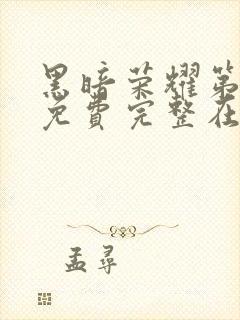 黑暗荣耀第
免費完整在
孟尋